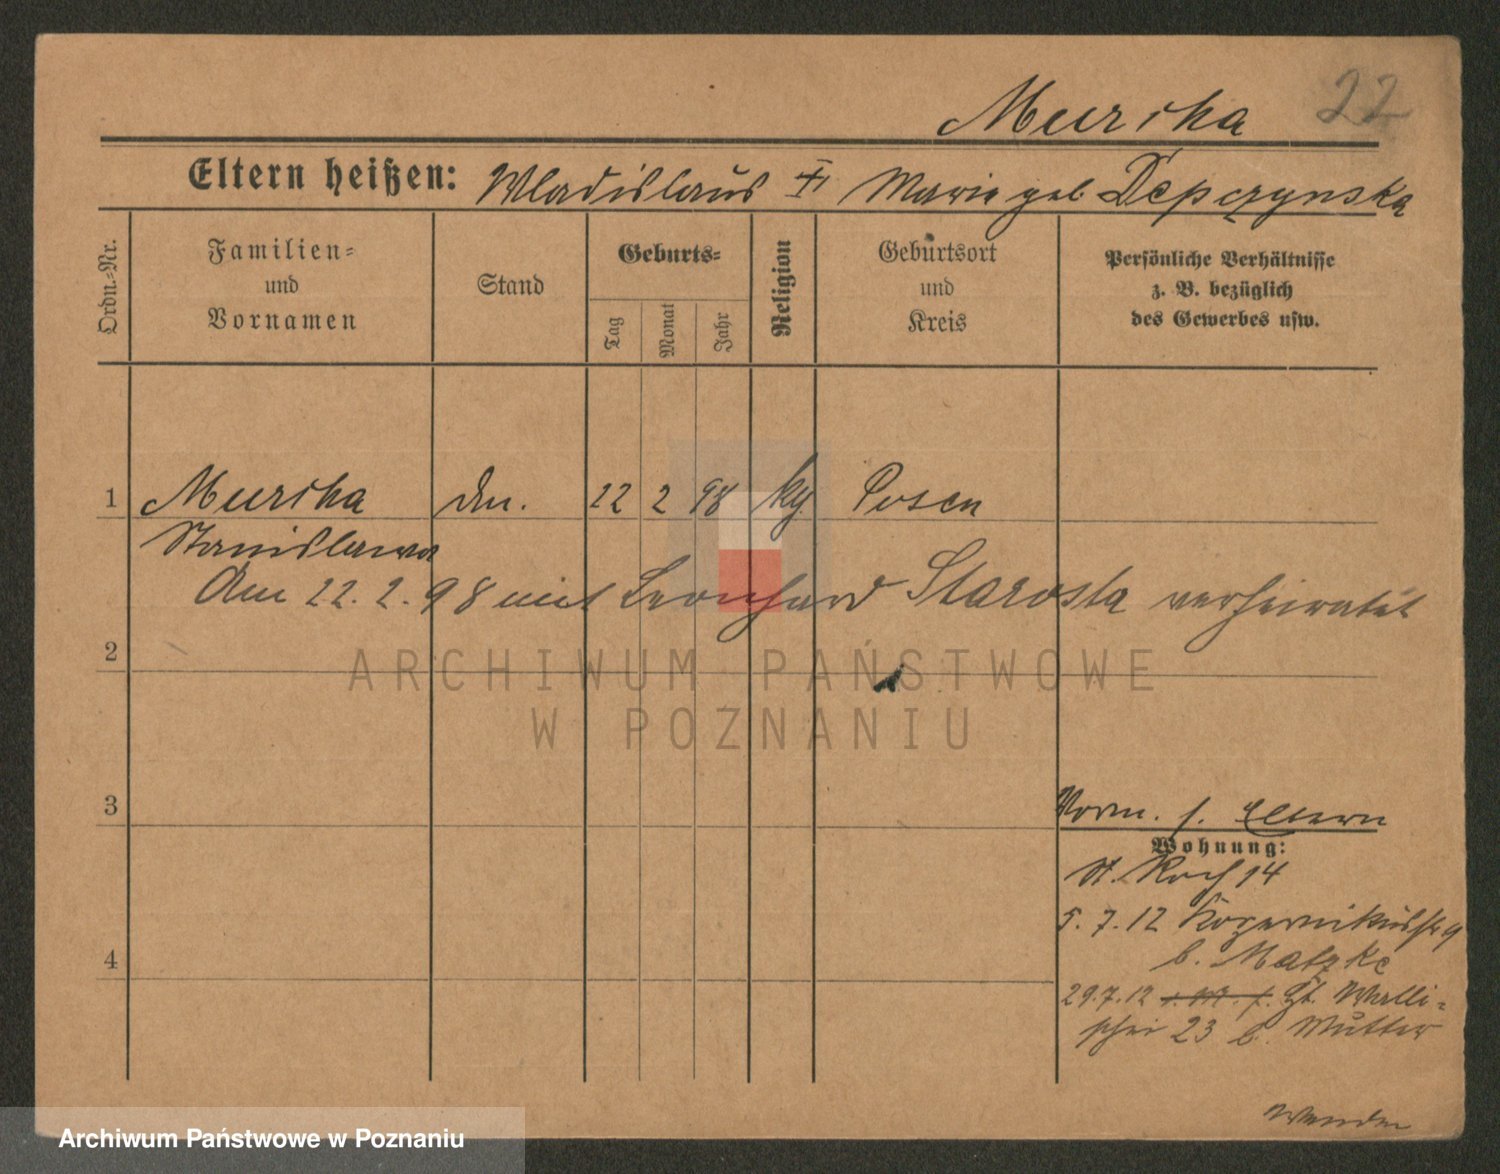 22
Murcka
Eltern heißen: Wladislaus Marie geb Depczynska
Ordn.-Nr.
Familien-
und
Vornamen
Stand
Geburts-
Tag
Monat
Jahr
Religion
Geburtsort
und
Kreis
Persönliche Verhältnisse
z. B. bezüglich
des Gewerbes usw.
1 Murcka 22 2 98 Posen
Stanislawa
Am 22. 2. 98 mit Leonhard Starosta verheiratet
2
ARCHIWUM PAŃSTWOWE
W POZNANIU
3
Vorm. s. Eltern
Wohnung:
St. Roch 14
5. 7. 12
b. Matzke
4
29. 7. 12 Walli-
schei 23 b. Mutter
Wenden
Archiwum Państwowe w Poznaniu